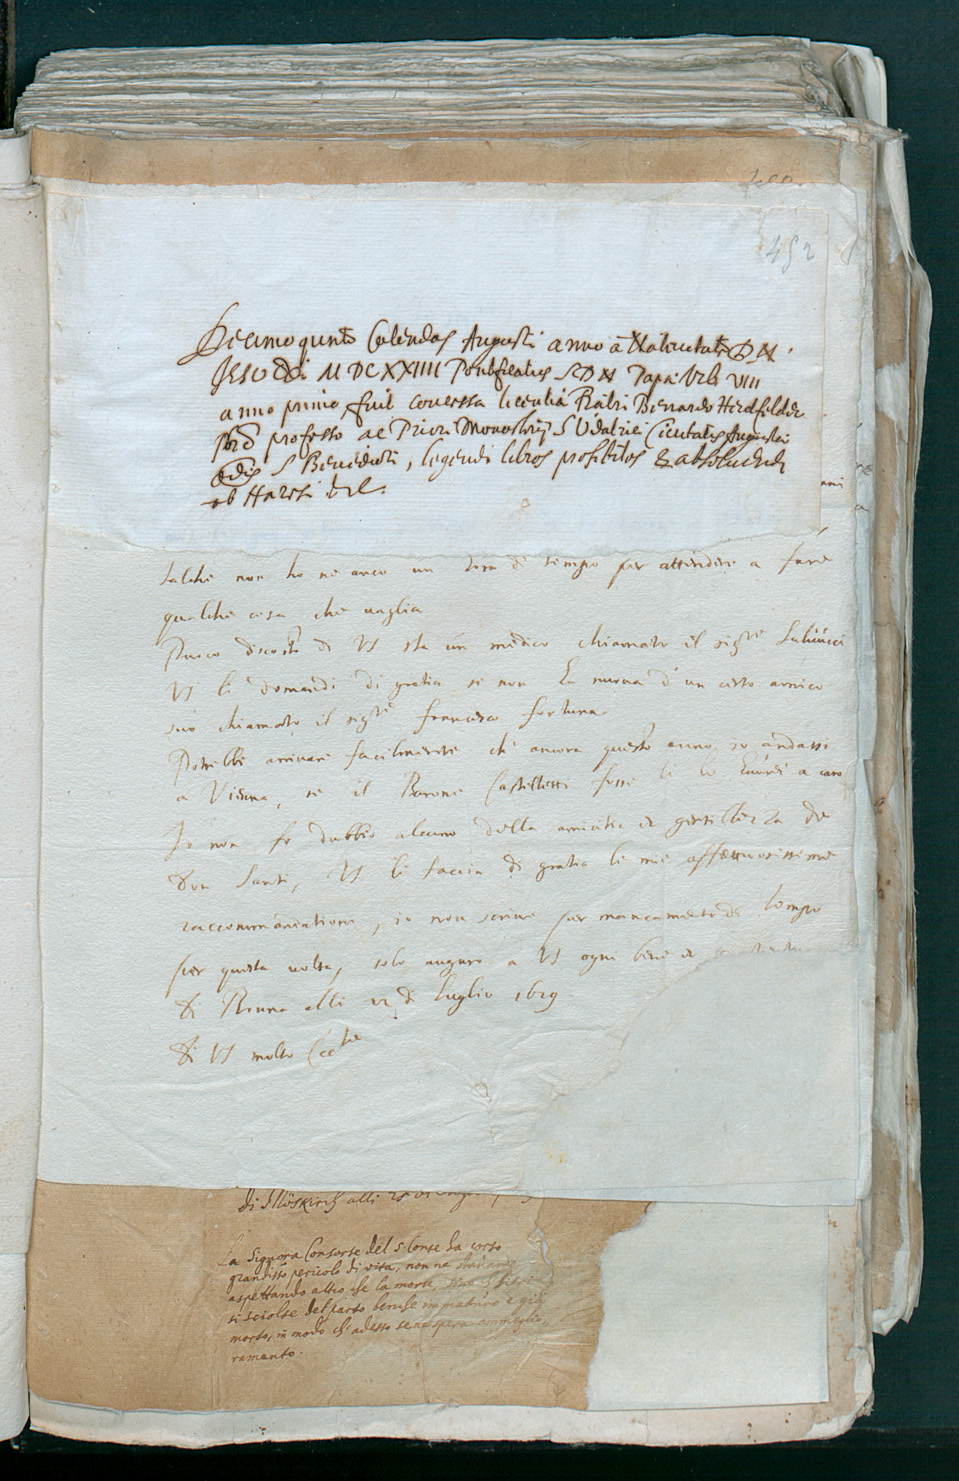 452
Decimoquinto Calendas Augusti anno a Natiuitate D N
JESU MDCXXIIII Pontificatus S D N Papæ Urb VIII
anno primo, fuit concessa licentia Fratri Bernardo Hirdfelder
professo ac Priori Monasterij S Udalrici Ciuitatis Augustæ
S Benedicti, legendi libros prohibitos & absoluendi
ab Hæresi
talche non ho ne anco un hora di tempo per attendere a fare
qualche cosa che uaglia
Puoco discosto di VS sta un medico chiamato il sigre
VS li domandi di gratia se non ha nuoua d'un certo amico
suo chiamato il sigre francesco fortuna
Potrebbe arriuare facilmente che ancora questo anno io andassi
a Vienna, se il Barone fosse li lo hauerei a caro
Io non fo dubbio alcuno della amicitia et gentilezza de
Don Santi, VS li faccia di gratia le mie affettuosissime
raccommandationi, io non scriuo per mancamento di tempo
per questa uolta, solo auguro a VS ogni bene et
Di Roma alli di Luglio 1629
Di VS molto
di Möskirch alli
La Signora Consorte del s Conte ha corso
grandiss pericolo di vita, non ne
aspettando altro che la morte,
si sciolse del parto benche immaturo e già
morto, in modo ch' adesso se ne spera
ramento.